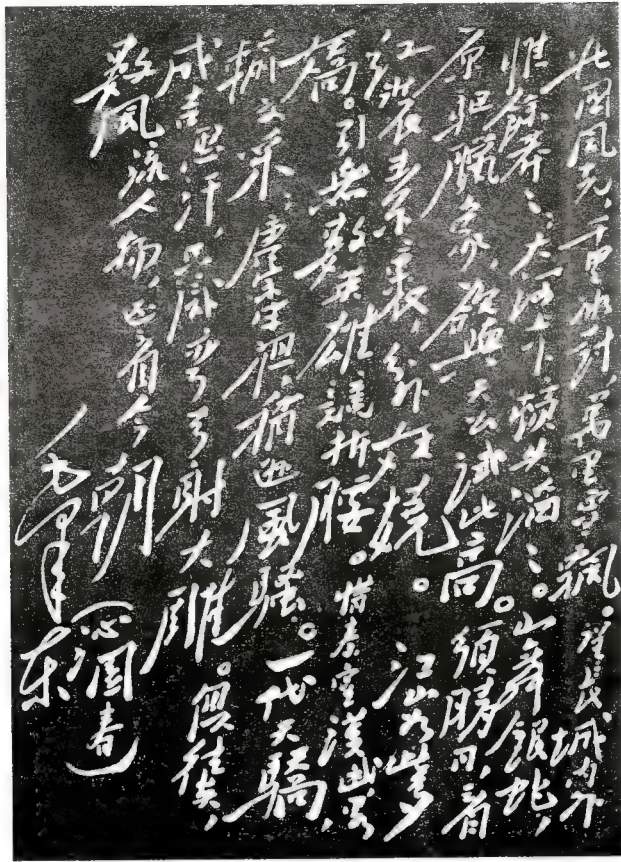 北國風光,千里冰封,萬里雪飄。望長城内外
惟餘莽々、大河上下,頓失滔々。山舞銀蛇,
原驅臘象,欲與天公試比高。須晴日,看
红裝素裹,分外妖嬈。江山如此多
嬌。引無數英雄競折腰。惜秦皇漢武,略
輸文采,唐宗宋祖,稍遜風騷。一代天驕,
成吉思汗,只識彎弓射大雕。俱往矣,
數風流人物,还看今朝(沁園春)
毛澤东